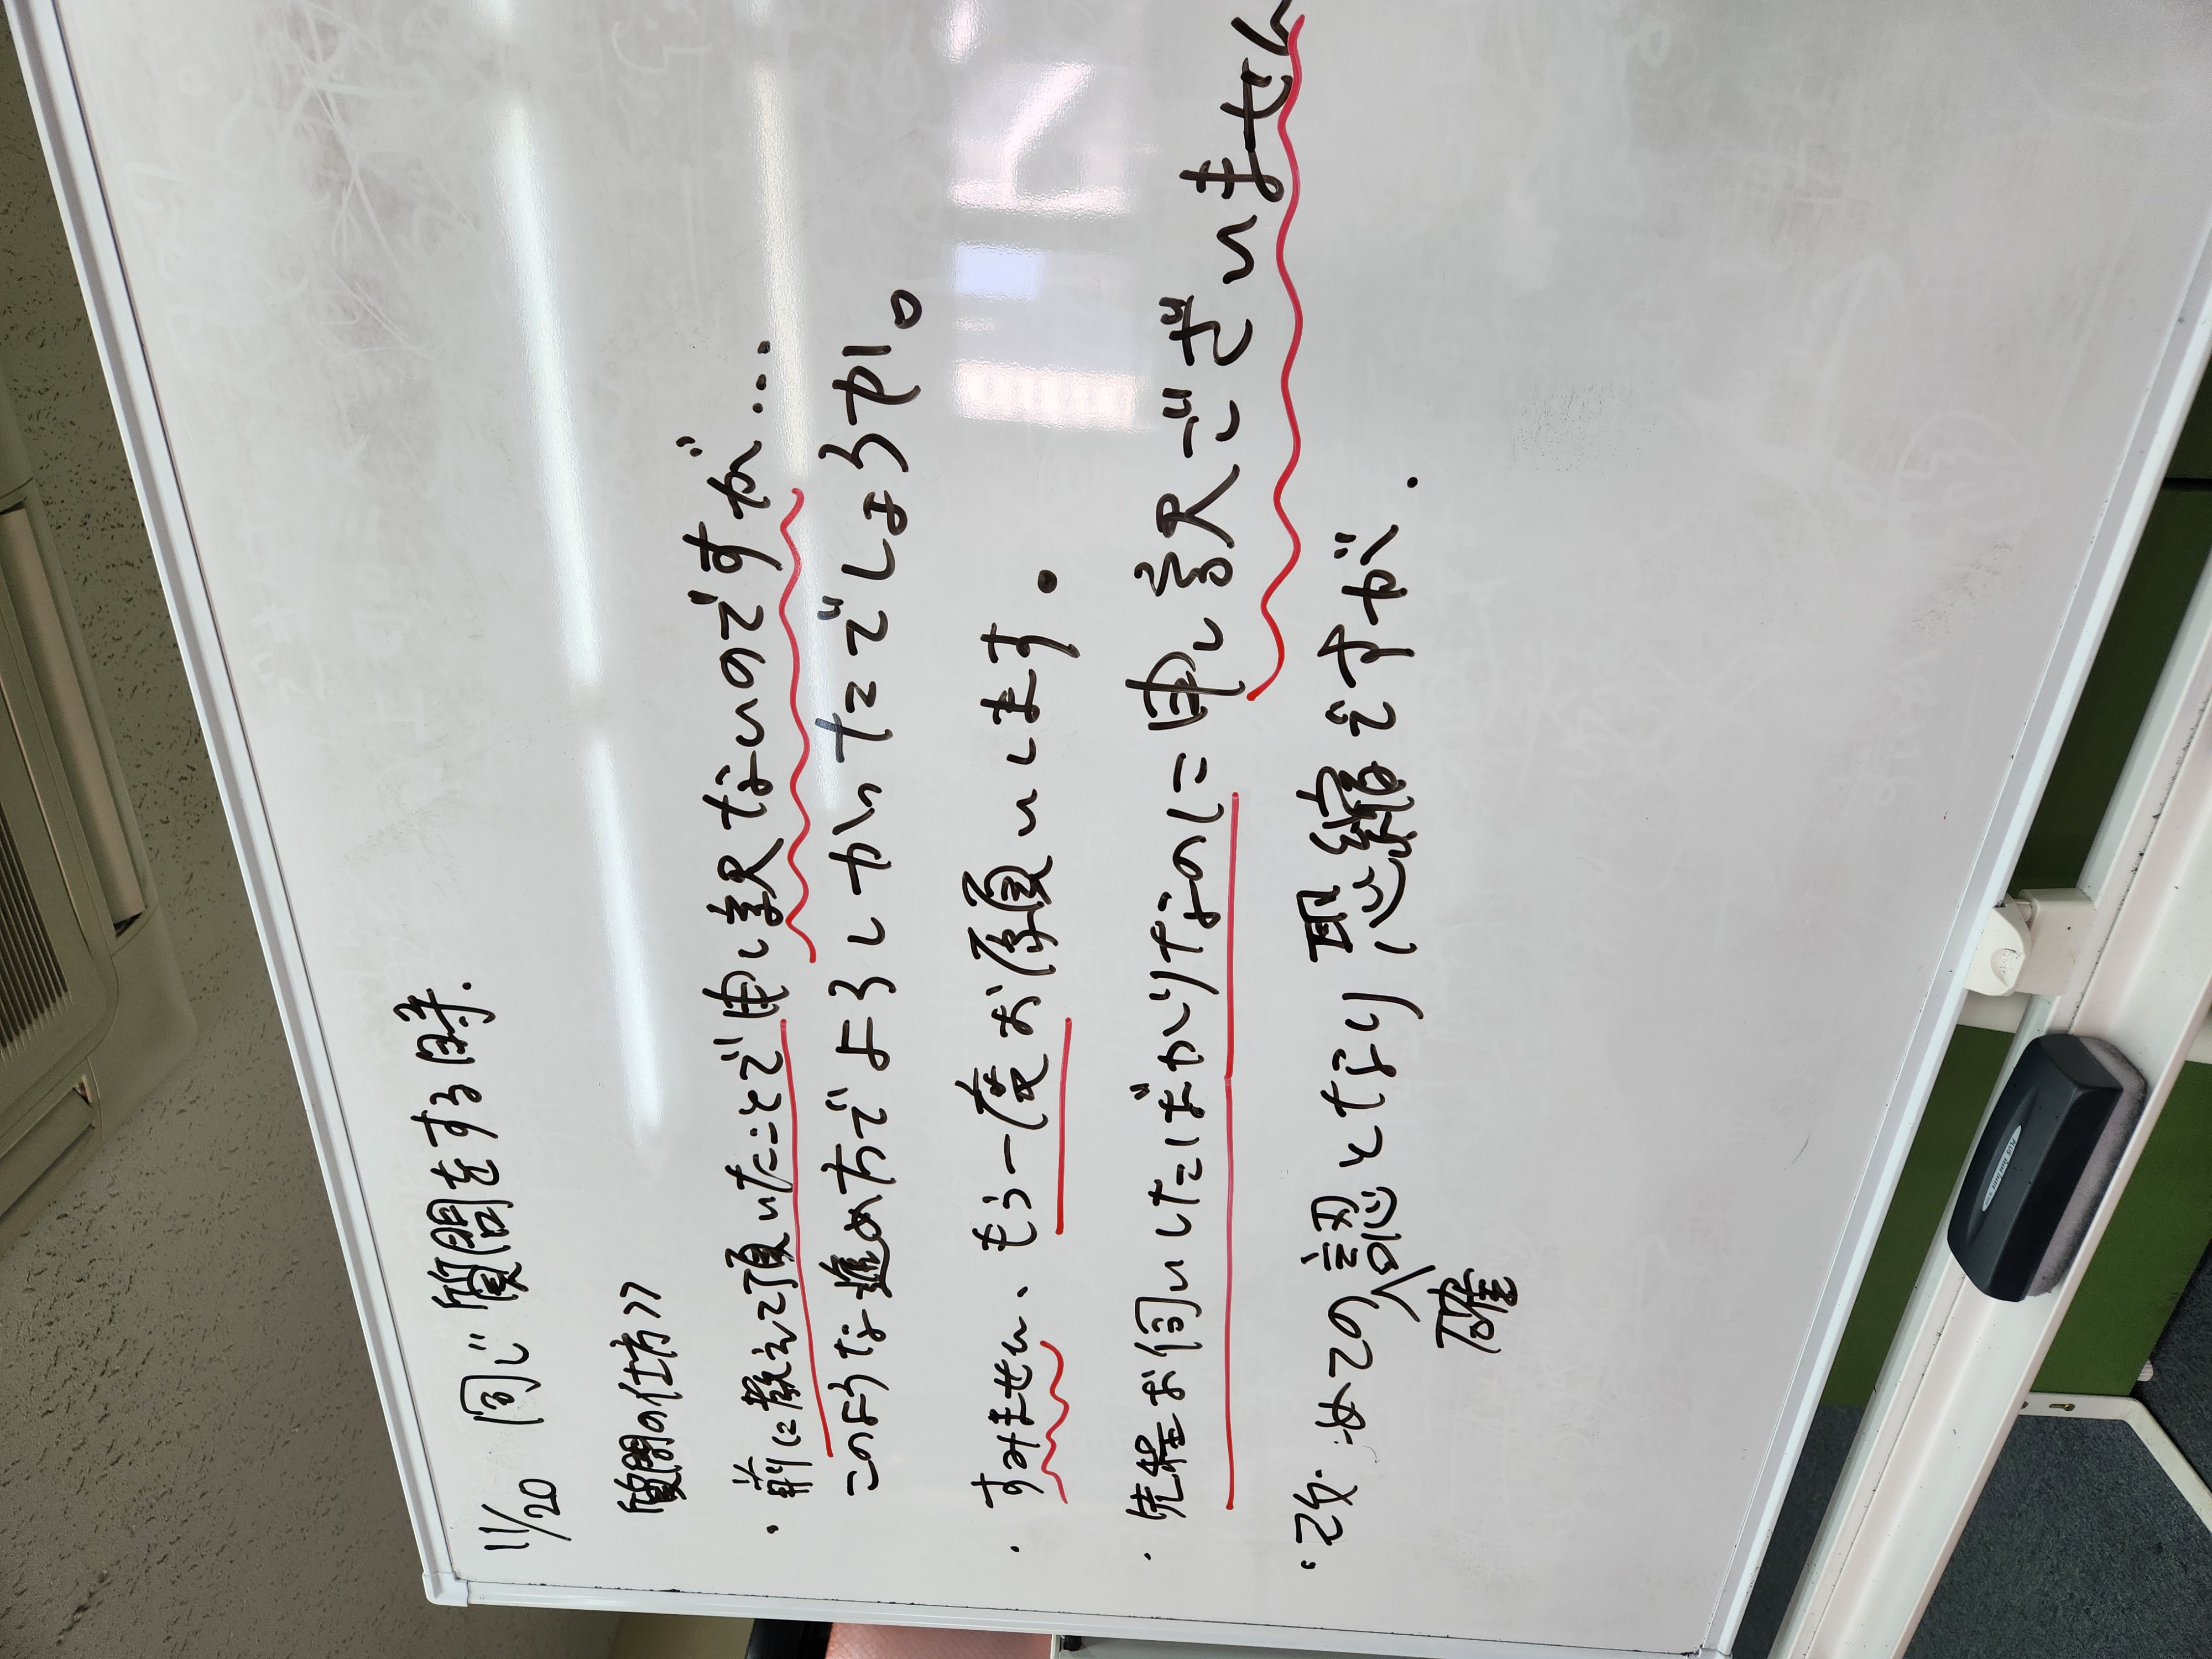 11/20 同じ質問をする時.
質問の仕方>>
・前に教えて頂いたことで申し訳ないのですが…
このような進め方でよろしかったでしょうか。
・すみません、もう一度お願いします.
・先程お伺いしたばかりなのに申し訳ございません
・改めての認となり恐縮ですが.
確